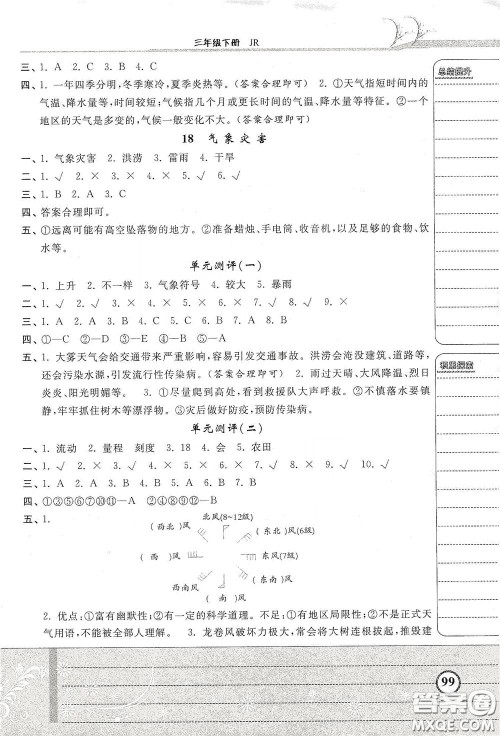 三年级下册 JR
三、1. A 2. C 3. C
四、1. 一年四季分明,冬季寒冷,夏季炎热等。(答案合理即可) 2. ①天气指短时间内的
气温、降水量等,时间较短;气候指几个月或几年的气温、降水量等特征。②一个
地区的天气是多变的,气候一般变化不大。(答案合理即可)
18 气象灾害
一、1. 气象灾害 2. 洪涝 3. 雷雨 4. 干旱
二、1. √ 2. × 3. × 4. × 5. √ 6. √
三、1. B 2. A 3. B 4. C
四、答案合理即可。
五、①远离可能有高空坠落物的地方。②准备蜡烛、手电筒、收音机,以及足够的食物、饮
水等。
单元测评(一)
一、1. 上升 2. 不一样 3. 气象符号 4. 较大 5. 暴雨
二、1. √ 2. √ 3. × 4. × 5. √ 6. √ 7. √ 8. √ 9. ×
三、1. B 2. C 3. A 4. A 5. C
四、①—C ②—D ③—A ④—B
五、1. 大雾天气会给交通带来严重影响,容易引发交通事故。洪涝会淹没建筑、道路等,
还会污染水源,引发流行性传染病。 2. 雨过天晴、大风降温、烈日
炎炎、阳光明媚等。 3. ①尽量爬到高处,看到救援队大声呼救。②不慎落水要镇
静,牢牢抓住树木等漂浮物。③灾后做好防疫,预防传染病。
单元测评(二)
一、1. 流动 2. 量程 刻度 3. 18 4. 会 5. 农田
二、1. √ 2. × 3. × 4. √ 5. √ 6. × 7. × 8. √ 9. × 10. √
三、1. B 2. A 3. C 4. A 5. A
四、①③⑤⑥⑦⑩—A ②④⑧⑨—B
五、1.
北风(8~12级)
(西北)风
(东北)风(6级)
(西)风
东风(7级)
西南风
(东南)风
(南)风
2. 优点:①富有幽默性;②有一定的科学道理。不足:①有地区局限性;②不是正式天
气用语,不能被全部人理解。 3. 龙卷风破坏力极大,常常会将大树连根拔起,推毁建
总结提升
积累探索
99
答案圈
MXQE.COM